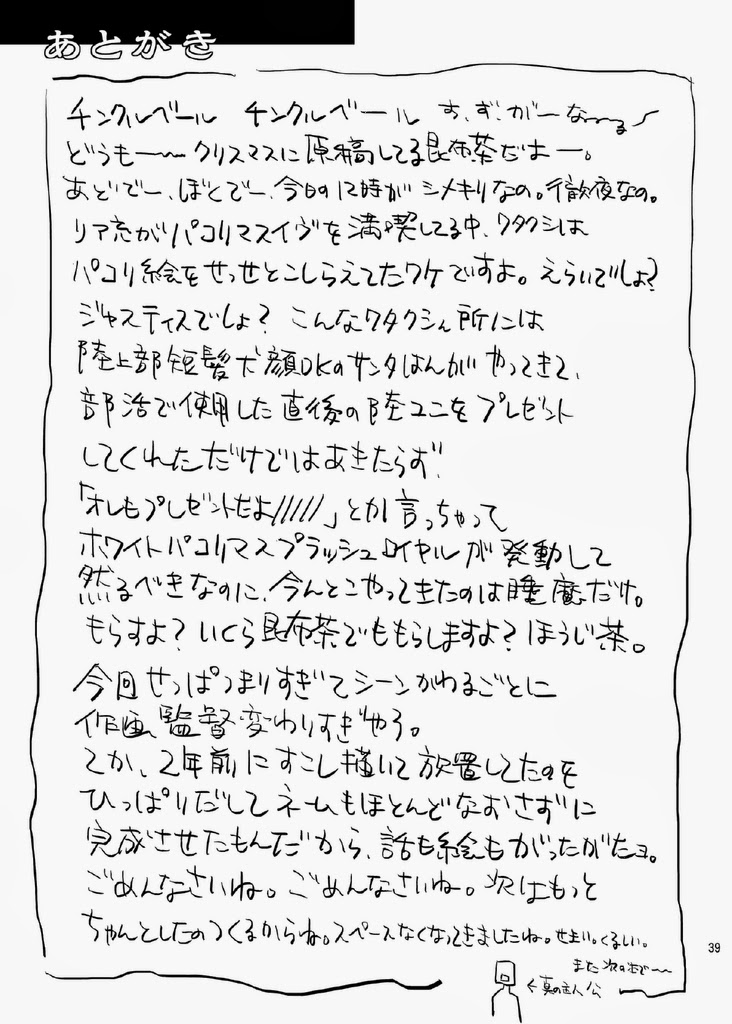 あとがき
チンクルベール チンクルベール す、ず、がーなーーる〜
どうもー〜クリスマスに原稿してる昆布茶だはー。
あどでー、ぼとでー、今日の12時がシメキリなの。行徹夜なの。
リア充がパコリマスイヴを満喫してる中、ワタクシは
パコリ絵をせっせとこしらえてたワケですよ。えらいでしょ?
ジャスティスでしょ? こんなワタクシん所には
陸上部短髪犬顔DKのサンタはんがやってきて、
部活で使用した直後の陸ユニをプレゼント
してくれただけではあきたらず、
「オレもプレゼントだよ/////」とか言っちゃって
ホワイトパコリマスプラッシュロイヤルが発動して
然るべきなのに、今んとこやってきたのは睡魔だけ。
もらすよ? いくら昆布茶でももらしますよ? ほうじ茶。
今回せっぱつまりすぎてシーンがわるごとに
作画監督変わりすぎやろ。
てか、2年前にすこし描いて放置してたのを
ひっぱりだしてネームもほとんどなおさずに
完成させたもんだから、話も絵もがったがたョ。
ごめんなさいね。ごめんなさいね。次はもっと
ちゃんとしたのつくるからね。スペースなくなってきましたね。せまい。くるしい。
また次の本で〜〜
←真の主人公
39